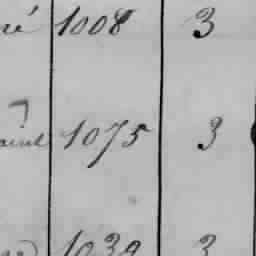 né 1008 3
aint 1075 3
1039 3